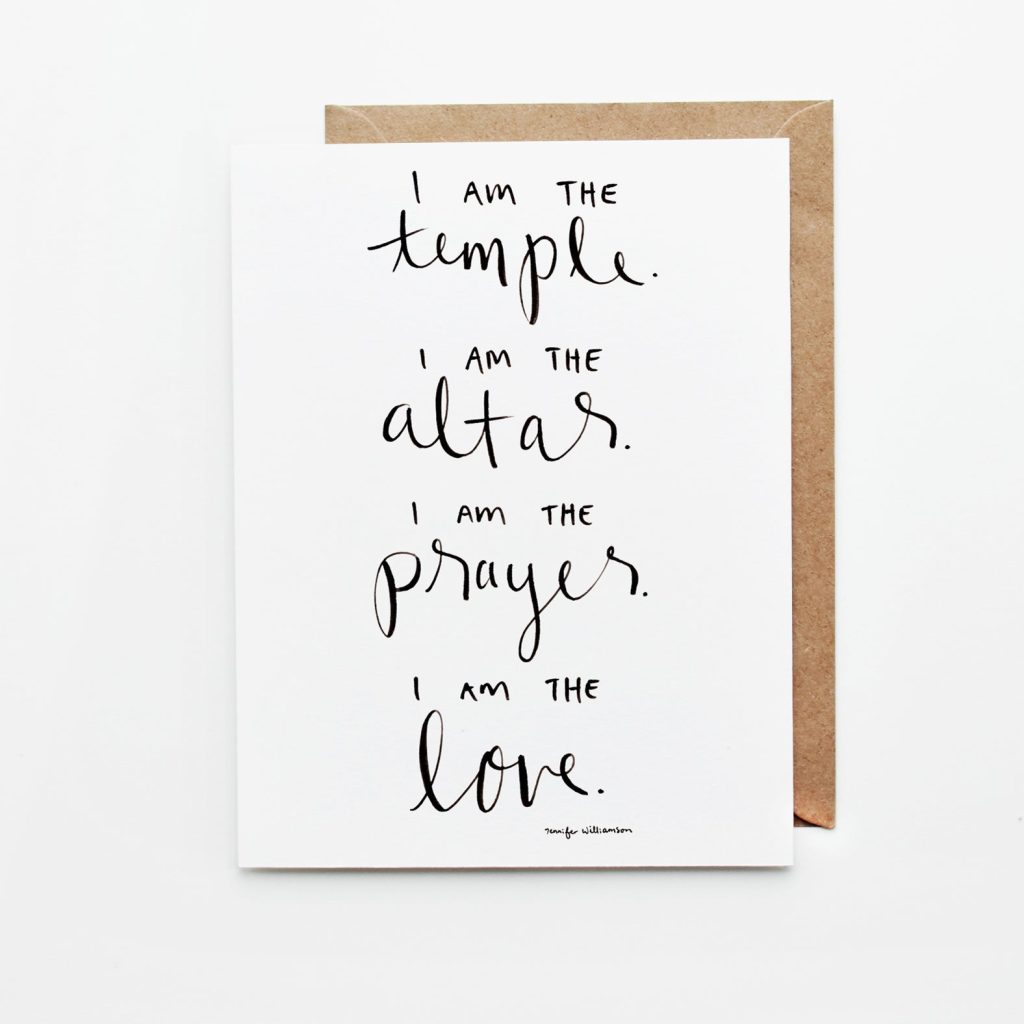 I AM THE
temple.
I AM THE
altar.
I AM THE
prayer.
I AM THE
love.
Jennifer Williamson